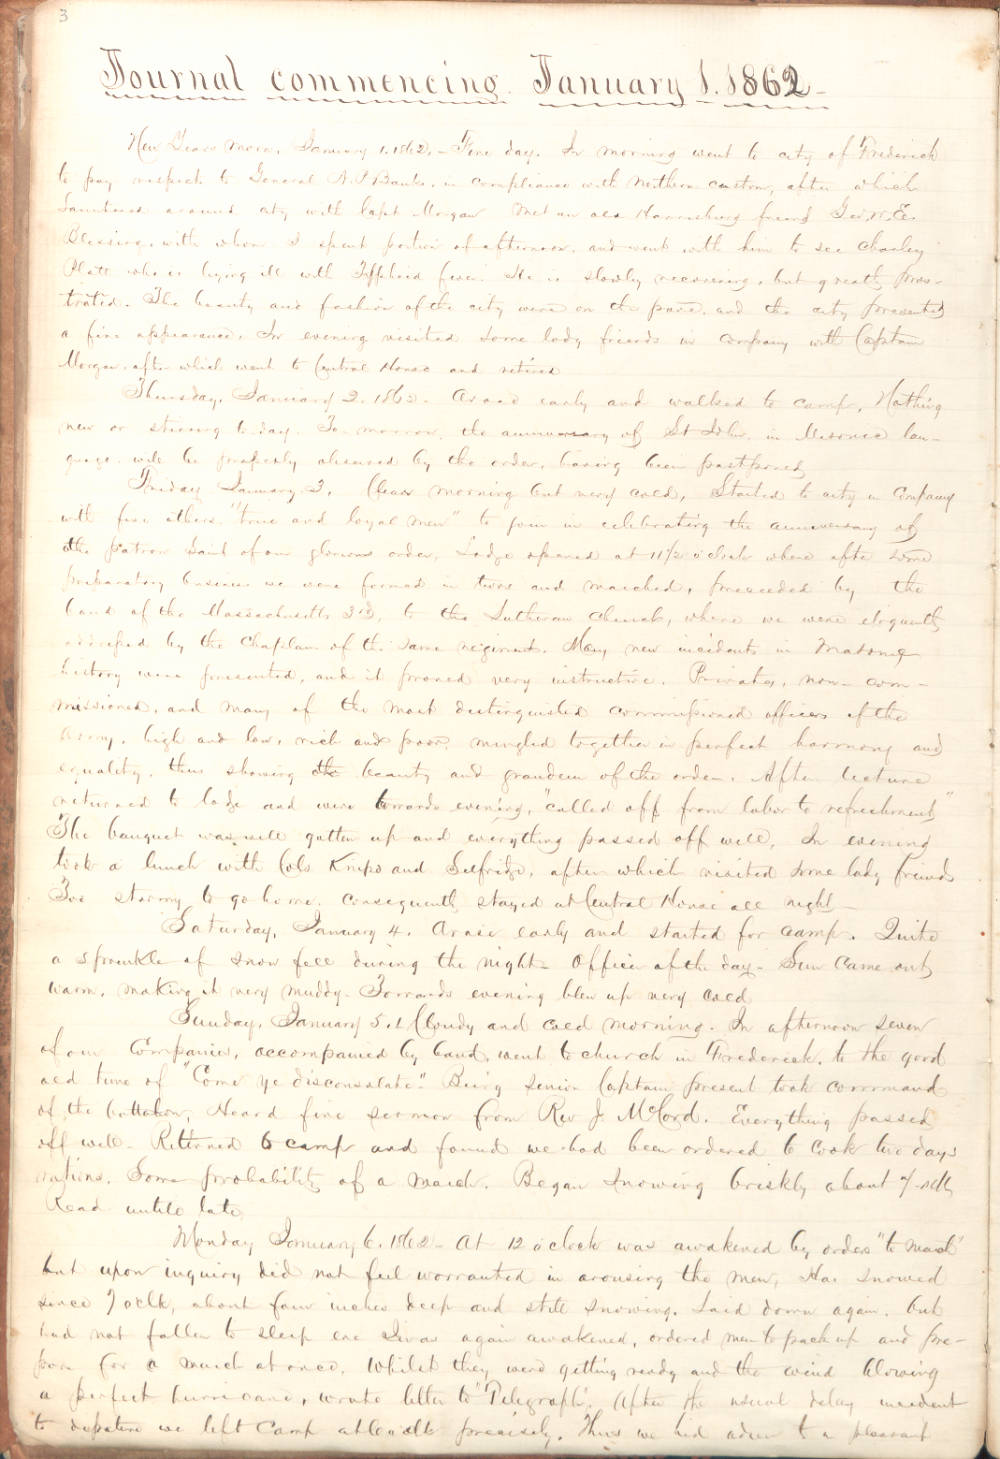 3
Journal commencing January 1. 1862-
New Years Morn, January 1. 1862. - Fine day. In morning went to city of Frederick
to pay respects to General N. P. Banks, in compliance with Northern custom, after which
Sauntered around city with Capt Morgan Met an old Harrisburg friend Geo. W. E.
Blessing, with whom I spent portion of afternoon, and went with him to see Charley
Platt who is lying ill with Typhoid fever. He is slowly recovering, but greatly pros-
trated. The beauty and fashion of the city were on the pave, and the city presented
a fine appearance. In evening visited some lady friends in company with Captain
Morgan, after which went to Central House and retired
Thursday, January 2. 1862- Arose early and walked to camp. Nothing
new or stirring to-day. To-morrow, the anniversary of St John, in Masonic lan-
guage, will be properly observed by the order, having been postponed
Friday January 3. Clear morning but very cold, Started to city in Company
with five others, "true and loyal men" to join in celebrating the anniversary of
the patron saint of our glorious order, Lodge opened at 11 1/2 o'clock where after some
preparatory business we were formed in twos and marched, preceeded by the
band of the Massachusetts, to the Lutheran Church, where we were eloquently
addressed by the Chaplain of the same regiment. Many new incidents in Masonic
history were presented, and it proved very instructive. Privates, non-com-
missioned, and many of the most distinguished commissioned officers of the
Army, high and low, rich and poor, mingled together in perfect harmony and
equality, thus showing the beauty and grandeur of the order. After lecture
returned to lodge and were towards evening, "called off from labor to refreshment"
The banquet was well gotten up and everything passed off well, In evening
took a lunch with Cols Knipe and Selfridge, after which visited some lady friends
Too stormy to go home, consequently stayed at Central House all night-
Saturday, January 4. Arose early and started for camp. Quite
a sprinkle of snow fell during the night- Officer of the day- Sun came out
warm, making it very muddy- Torwards evening blew up very cold
Sunday, January 5. Cloudy and cold morning. In afternoon seven
of our Companies, accompanied by band, went to church in Frederick, to the good
old tune of "Come ye disconsolate". Being senior Captain present took command
of the battalion, Heard fine sermon from Rev J. McCord. Everything passed
off well- Returned to camp and found we had been ordered to cook two days
rations. Some probability of a march. Began snowing briskly about 7 oclk
Read untill late
Monday January 6. 1862- At 12 o'clock was awakened by orders "to march"
but upon inquiry did not feel warranted in arousing the men, Has snowed
since 7 oclk, about four inches deep and still snowing. Laid down again, but
had not fallen to sleep ere I was again awakened, ordered men to pack up and pre-
pare for a march at once. Whilst they were getting ready and the wind blowing
a perfect hurricane, wrote letter to "Telegraph". After the usual delay incident
to departure we left Camp at 6 o'clk precisely. Thus we bid adieu to a pleasant